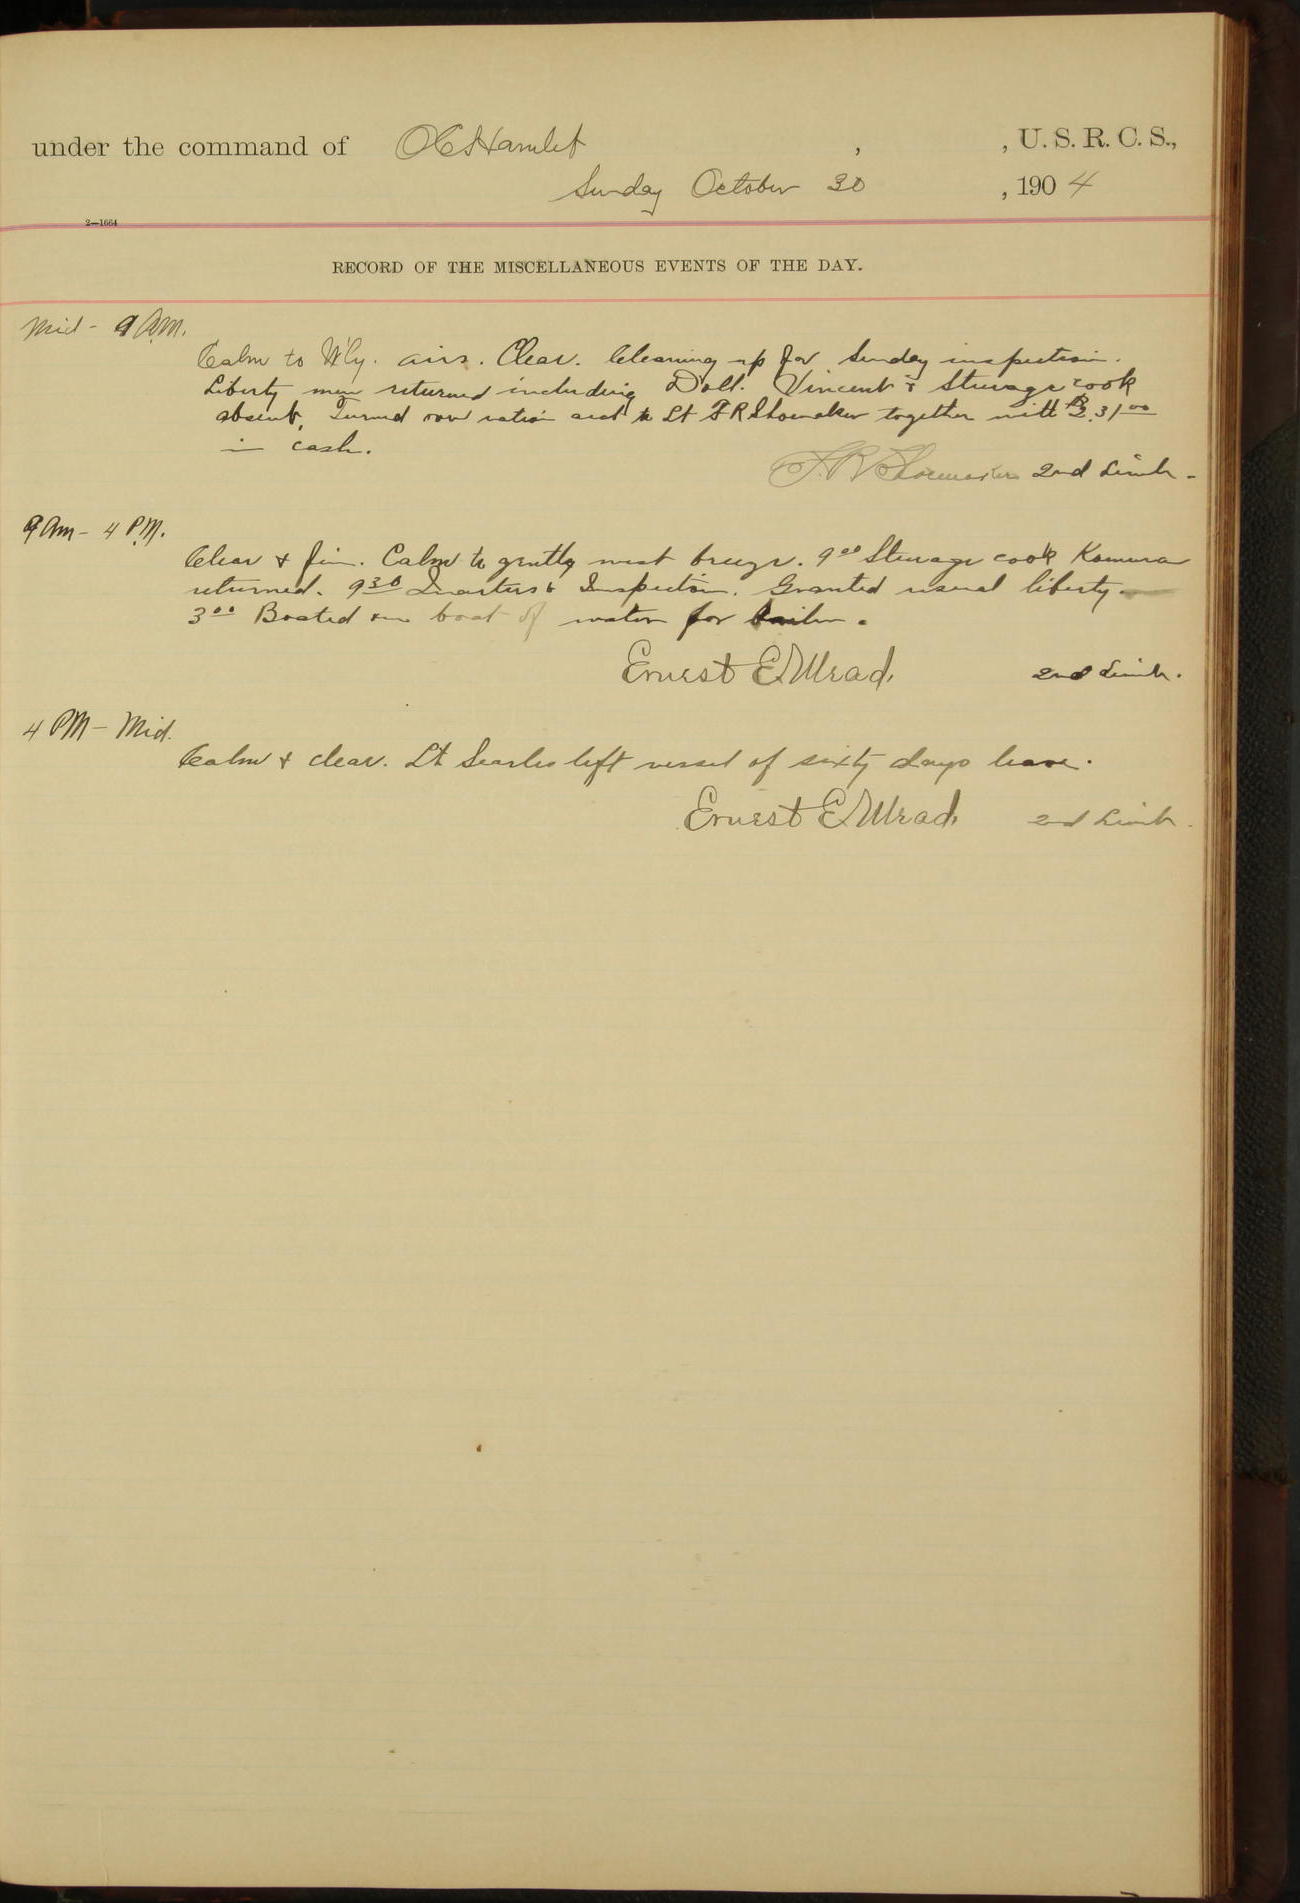 under the command of O C Hamlet , , U. S. R. C. S.,
Sunday October 30 , 1904
2—1664
RECORD OF THE MISCELLANEOUS EVENTS OF THE DAY.
Mid - 9 A.M.
Calm to W'ly. airs. Clear. Cleaning up for Sunday inspection.
Liberty men returned including Doll. Vincent & Steerage cook
absent. Turned over ration acct to Lt F R Shoemaker together with
in cash.
F. R. Shoemaker 2nd Lieut. -
9 Am - 4 P.M.
Clear & fine. Calm to gentle west breeze. 9 00 Steerage cook Komura
returned. 9 30 Quarters & Inspection. Granted usual liberty.
3 00 Boated one boat of water for boiler.
Ernest E. Mead. 2nd Lieut.
4 PM - Mid.
Calm & clear. Lt Searles left vessel of sixty days leave.
Ernest E. Mead. 2nd Lieut.